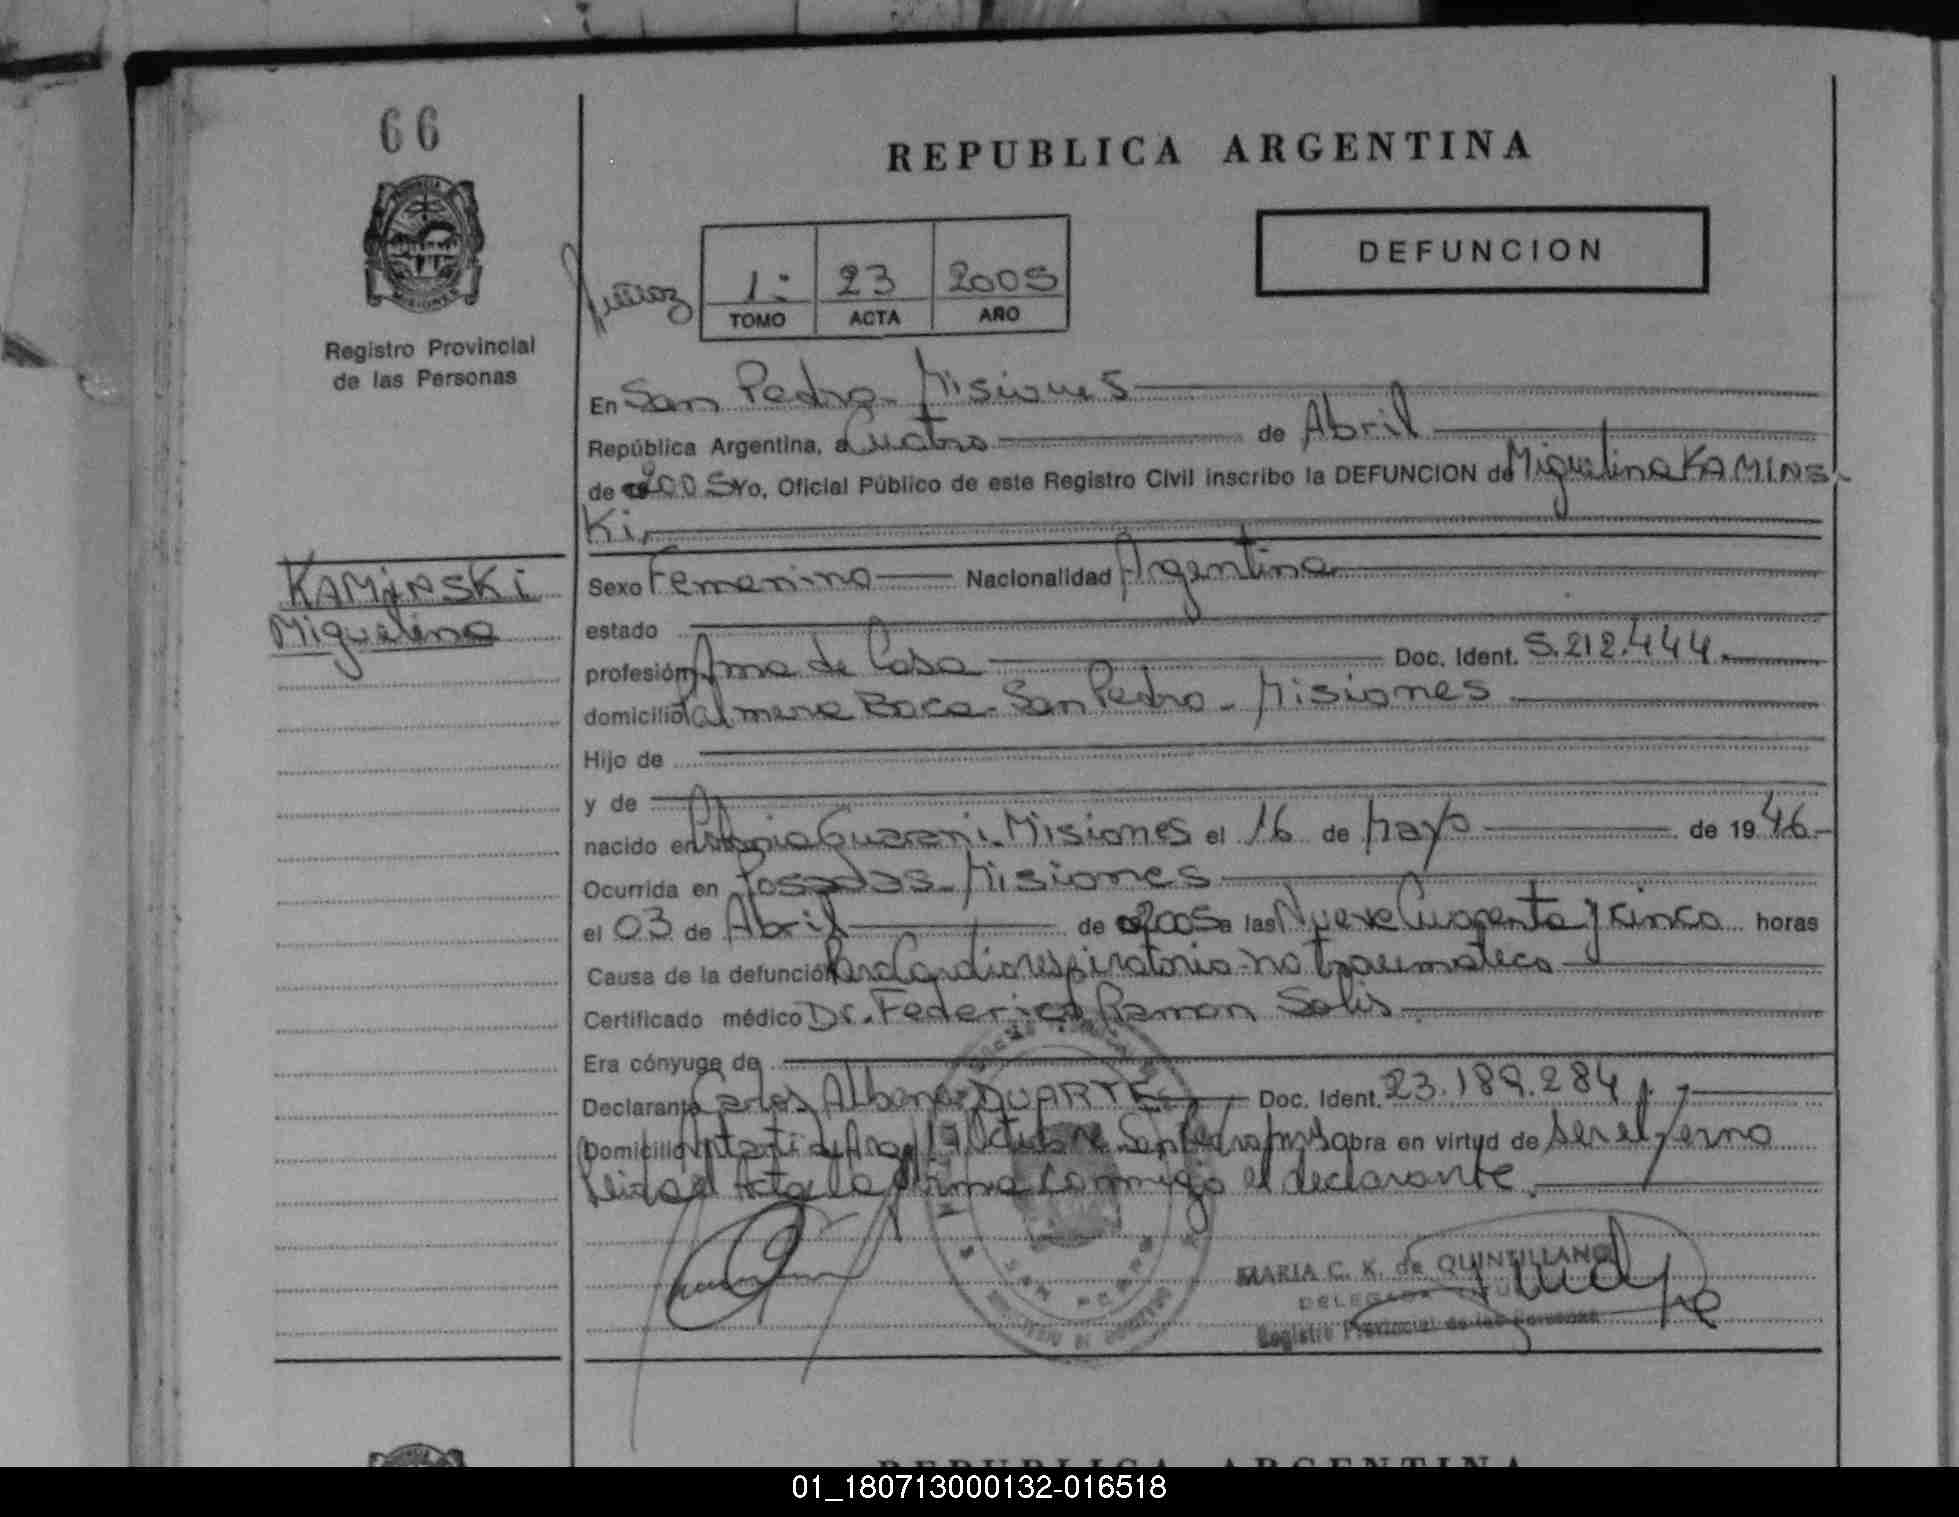 66
REPUBLICA ARGENTINA
DEFUNCION
1: 23 2005
TOMO ACTA AÑO
Registro Provincial
de las Personas
En San Pedro - Misiones
República Argentina, a Cuatro de Abril
de 2005 Yo, Oficial Público de este Registro Civil inscribo la DEFUNCION de Miguelina KAMINS-
Ki,
KAMINSKi
Miguelina
Sexo Femenino Nacionalidad Argentina
estado
profesión Ama de Casa Doc. Ident. 5.212.444.
domicilio Palmera Boca - San Pedro - Misiones
Hijo de
y de
nacido en Colonia Guarani - Misiones el 16 de Mayo de 1946
Ocurrida en Posadas - Misiones
el 03 de Abril de 2005 a las Nueve Cuarenta y cinco horas
Causa de la defunción Paro Cardiorespiratorio no traumatico
Certificado médico Dr. Federico Ramon Solis
Era cónyuge de
Declarante Carlos Albano DUARTE Doc. Ident. 23.189.284
Domicilio 17 Octubre San Pedro obra en virtud de ser el yerno
Leida el Acta la firma conmigo el declarante.
MARIA C. K. de QUINTILLANO
DELEGADA
Registro Provincial de las Personas
SAN PEDRO
REPUBLICA ARGENTINA
01_180713000132-016518